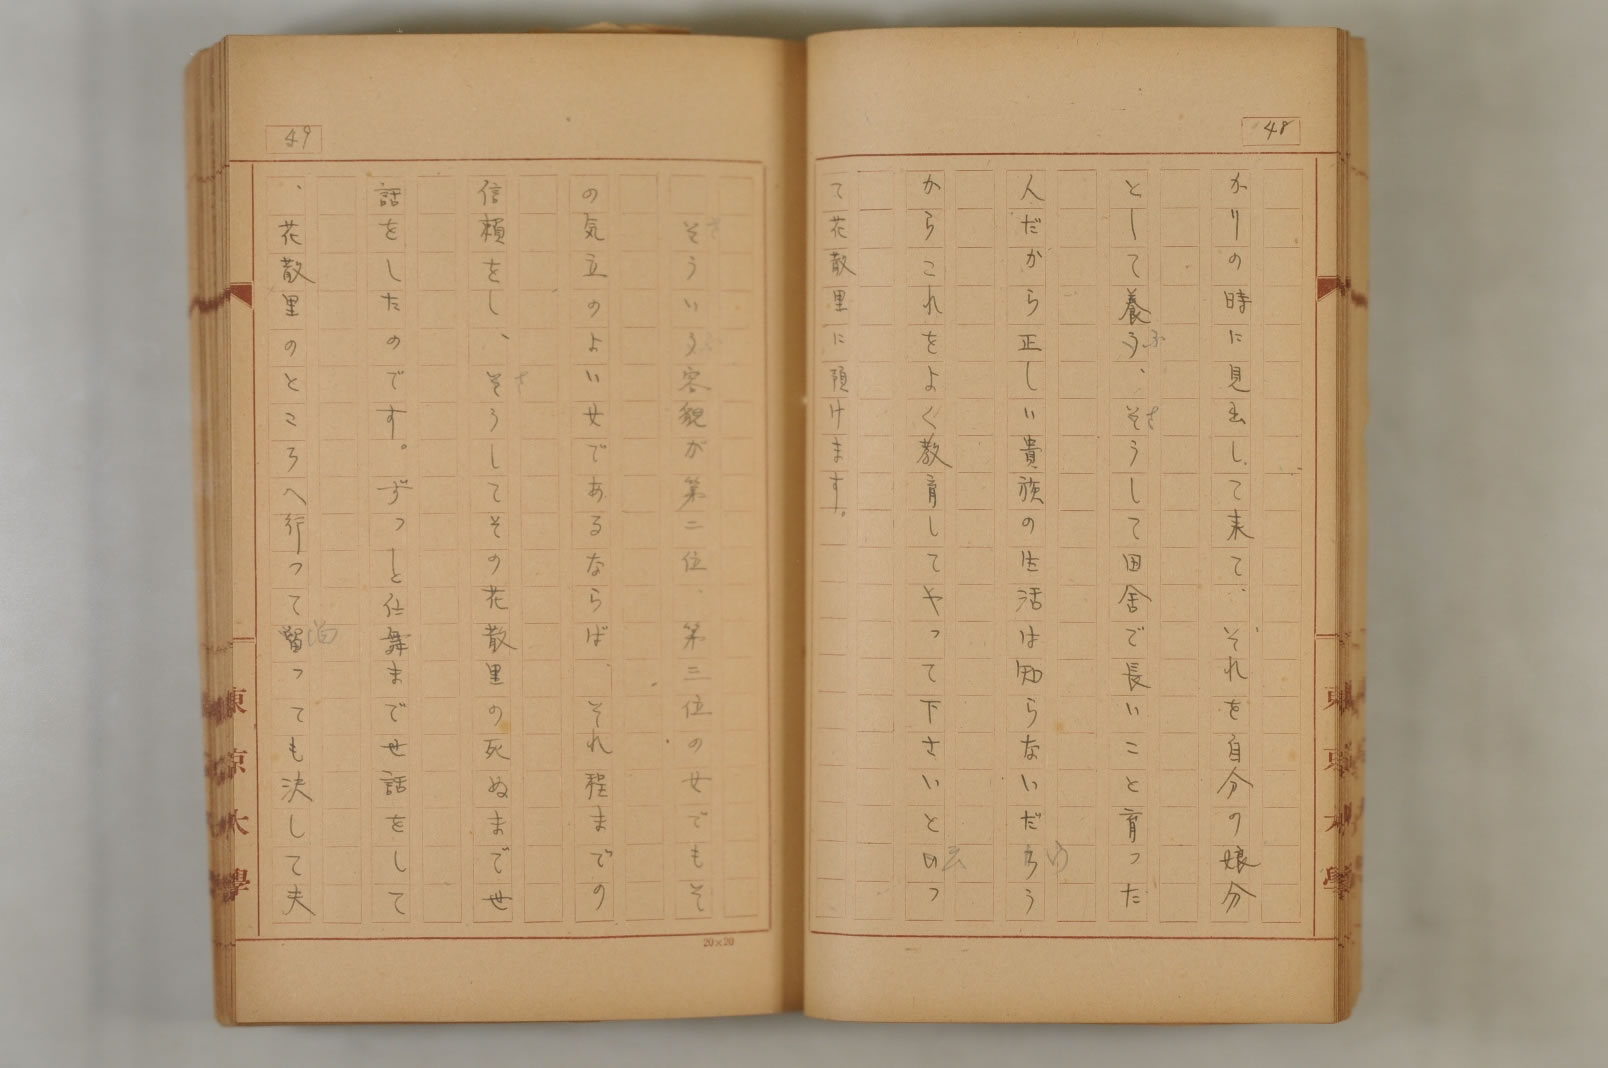 48
かりの時に見出して来て、それを自分の娘分
として養う、そうして田舎で長いこと育った
人だから正しい貴族の生活は知らないだろう
からこれをよく教育してやって下さいと
て花散里に預けます。
東京大學
49
そういう容貌が第二位、第三位の女でもそ
の気立のよい女であるならば、それ程までの
信頼をし、そうしてその花散里の死ぬまで世
話をしたのです。ずっと仕舞まで世話をして
、花散里のところへ行って留っても決して夫
20×20
東京大學